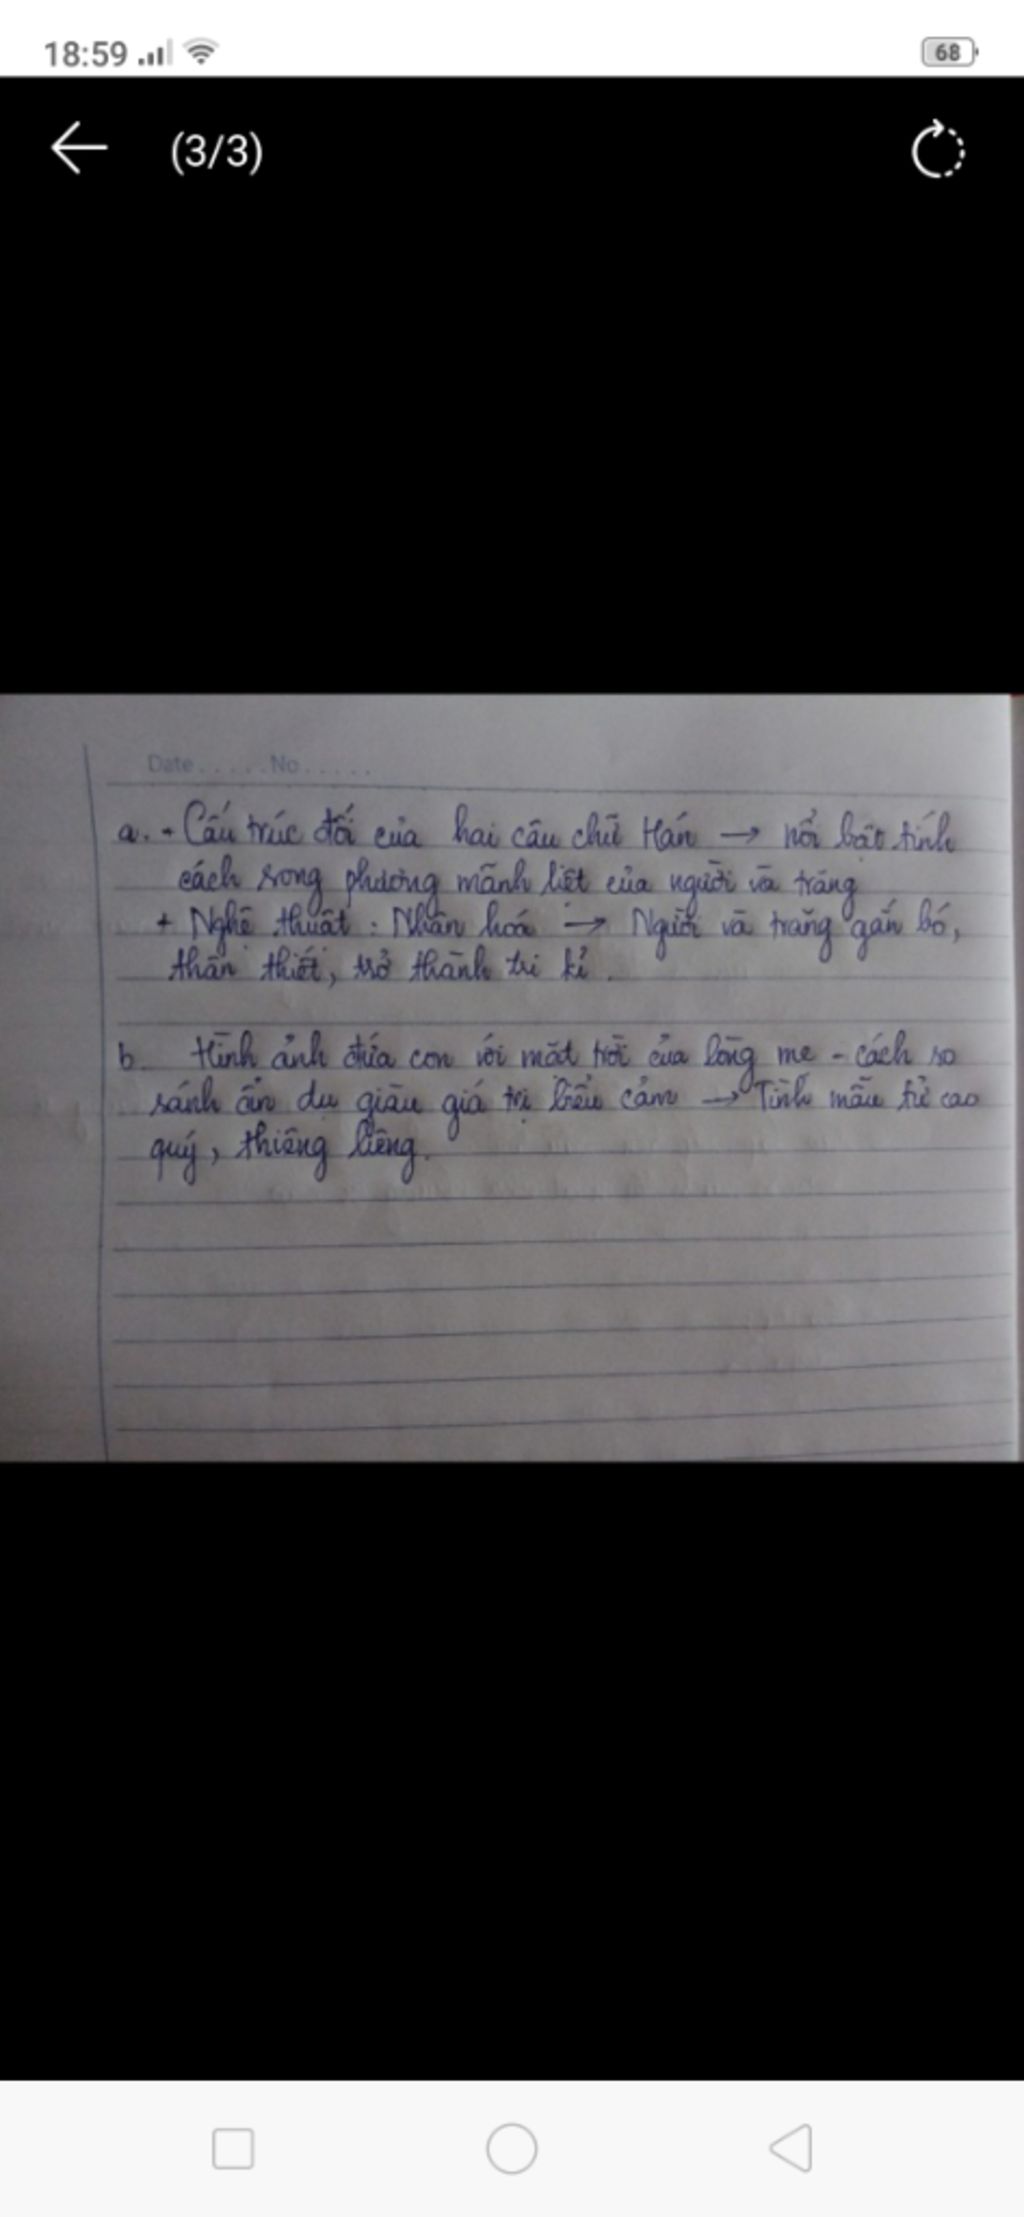 18:59
68
(3/3)
Date.....No.....
a. + Cấu trúc đối của hai câu chữ Hán → nổi bật tính
cách song phương mãnh liệt của người và trăng
+ Nghệ thuật : Nhân hoá → Người và trăng gắn bó,
thân thiết, trở thành tri kỉ.
b. Hình ảnh đứa con với mặt trời của lòng mẹ - cách so
sánh ẩn dụ giàu giá trị biểu cảm → Tình mẫu tử cao
quý, thiêng liêng.